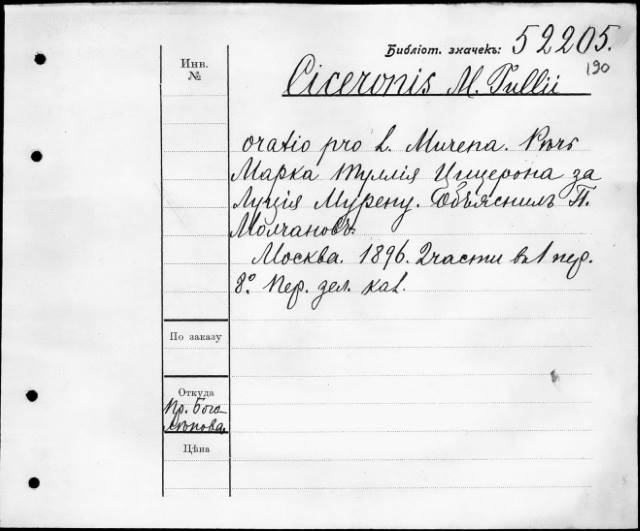 Библіот. значекъ: 52205.
190
Инв.
№
Ciceronis M. Tullii
oratio pro L. Murena. Рѣчь
Марка Туллія Цицерона за
Луція Мурену. Объяснилъ П.
Молчановъ.
Москва. 1896. 2 части въ 1 пер.
8° Пер. дел. кал.
По заказу
Откуда
Пр. Бого
лѣпова
Цѣна